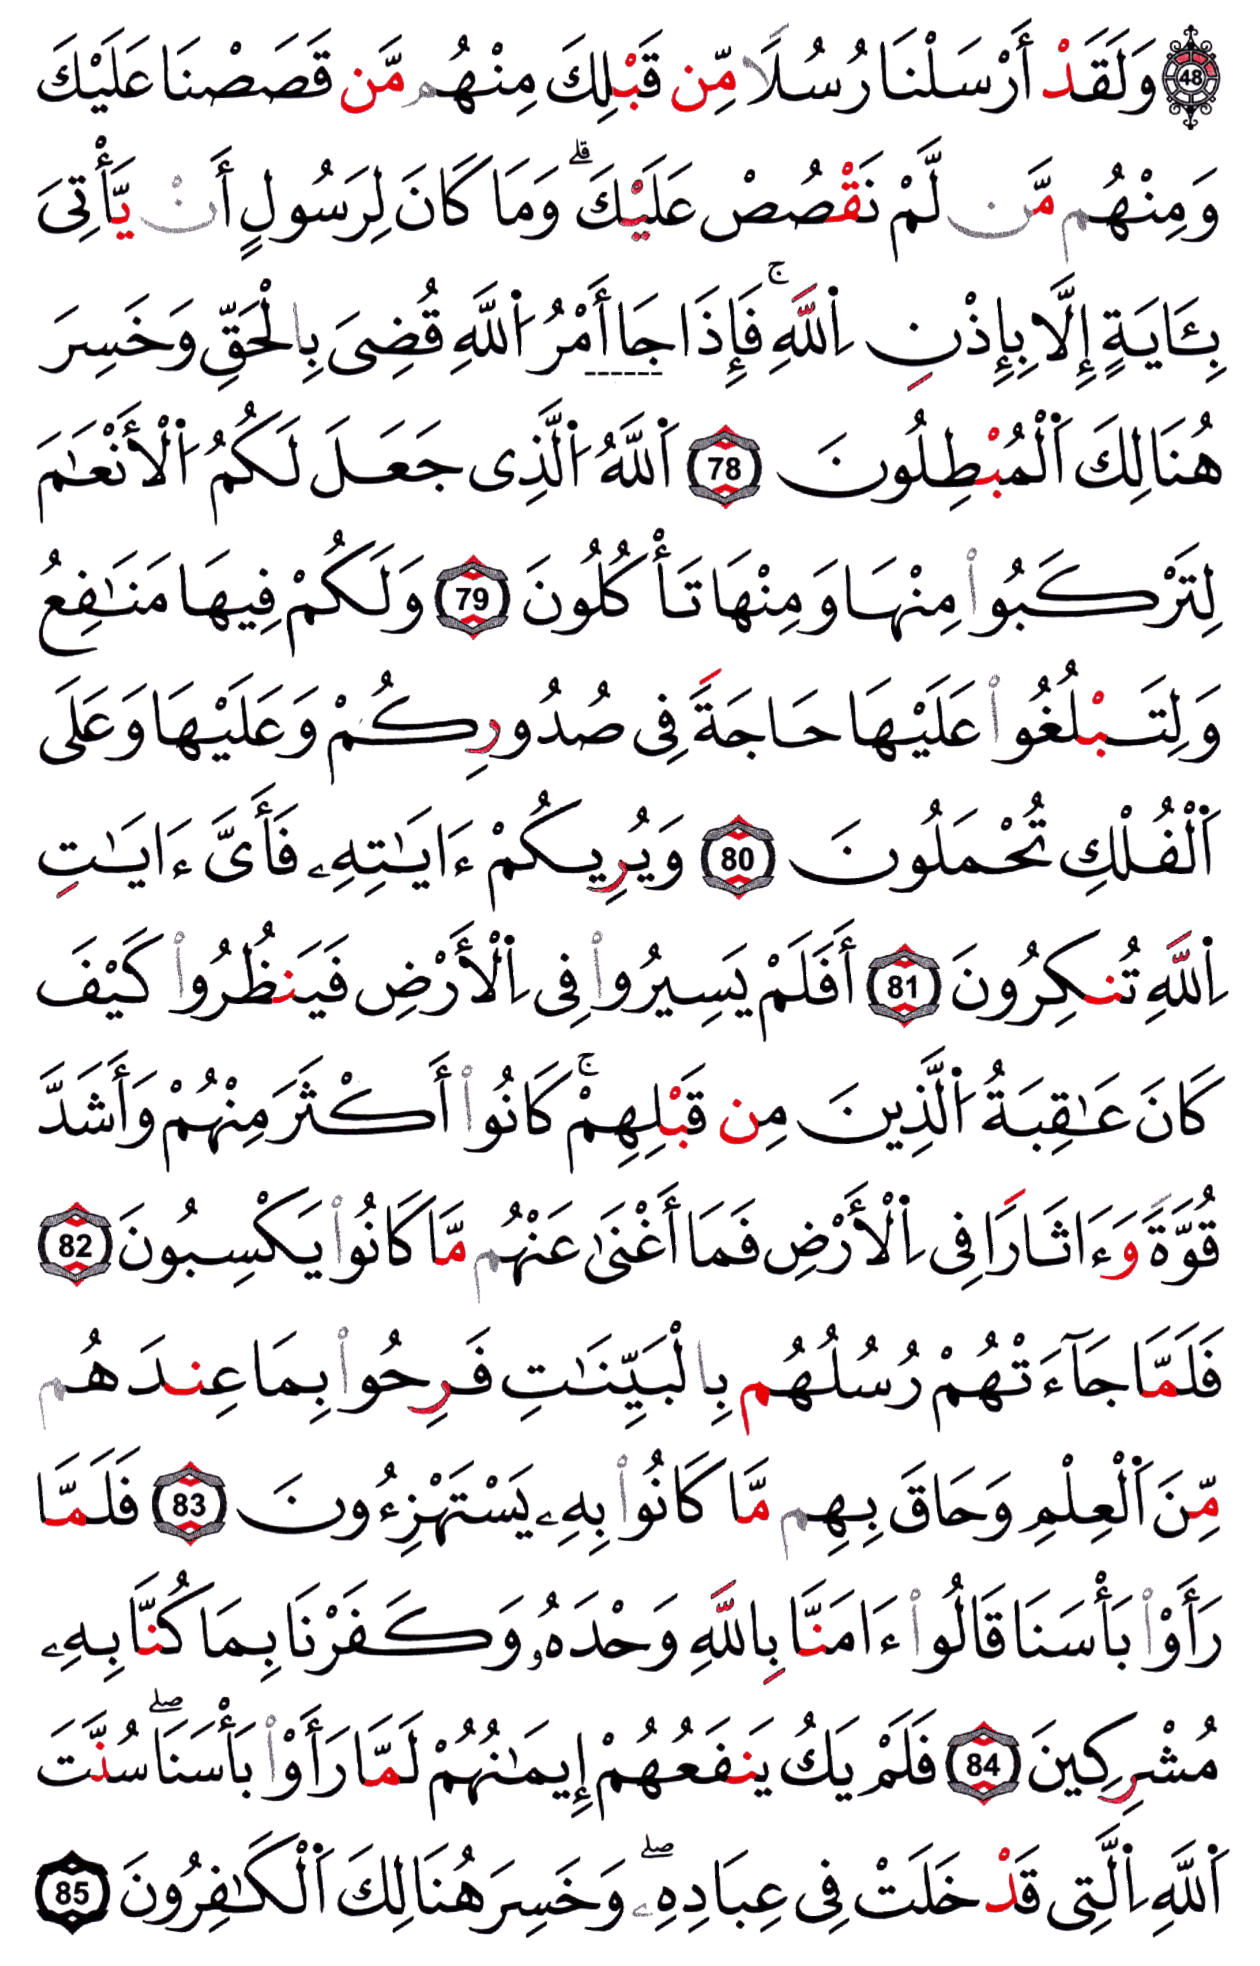 48 وَلَقَدْ أَرْسَلْنَا رُسُلًا مِّن قَبْلِكَ مِنْهُم مَّن قَصَصْنَا عَلَيْكَ
وَمِنْهُم مَّن لَّمْ نَقْصُصْ عَلَيْكَ ۗ وَمَا كَانَ لِرَسُولٍ أَنْ يَّأْتِىَ
بِـَٔايَةٍ إِلَّا بِإِذْنِ اِ۬للَّهِ ۚ فَإِذَا جَا أَمْرُ اُ۬للَّهِ قُضِىَ بِالْحَقِّ وَخَسِرَ
هُنَالِكَ اَ۬لْمُبْطِلُونَ 78 اَ۬للَّهُ اُ۬لَّذِى جَعَلَ لَكُمُ اُ۬لْأَنْعَٰمَ
لِتَرْكَبُواْ مِنْهَا وَمِنْهَا تَأْكُلُونَ 79 وَلَكُمْ فِيهَا مَنَٰفِعُ
وَلِتَبْلُغُواْ عَلَيْهَا حَاجَةً فِى صُدُورِكُمْ وَعَلَيْهَا وَعَلَى
اَ۬لْفُلْكِ تُحْمَلُونَ 80 وَيُرِيكُمْ ءَايَٰتِهِۦ فَأَىَّ ءَايَٰتِ
اِ۬للَّهِ تُنكِرُونَ 81 أَفَلَمْ يَسِيرُواْ فِى اِ۬لْأَرْضِ فَيَنظُرُواْ كَيْفَ
كَانَ عَٰقِبَةُ اُ۬لَّذِينَ مِن قَبْلِهِمْ ۚ كَانُواْ أَكْثَرَ مِنْهُمْ وَأَشَدَّ
قُوَّةً وَءَاثَارًا فِى اِ۬لْأَرْضِ فَمَا أَغْنَىٰ عَنْهُم مَّا كَانُواْ يَكْسِبُونَ 82
فَلَمَّا جَآءَتْهُمْ رُسُلُهُم بِالْبَيِّنَٰتِ فَرِحُواْ بِمَا عِندَهُم
مِّنَ اَ۬لْعِلْمِ وَحَاقَ بِهِم مَّا كَانُواْ بِهِۦ يَسْتَهْزِءُونَ 83 فَلَمَّا
رَأَوْاْ بَأْسَنَا قَالُواْ ءَامَنَّا بِاللَّهِ وَحْدَهُۥ وَكَفَرْنَا بِمَا كُنَّا بِهِۦ
مُشْرِكِينَ 84 فَلَمْ يَكُ يَنفَعُهُمْ إِيمَٰنُهُمْ لَمَّا رَأَوْاْ بَأْسَنَا ۖ سُنَّتَ
اَ۬للَّهِ اِ۬لَّتِى قَدْ خَلَتْ فِى عِبَادِهِۦ ۖ وَخَسِرَ هُنَالِكَ اَ۬لْكَٰفِرُونَ 85